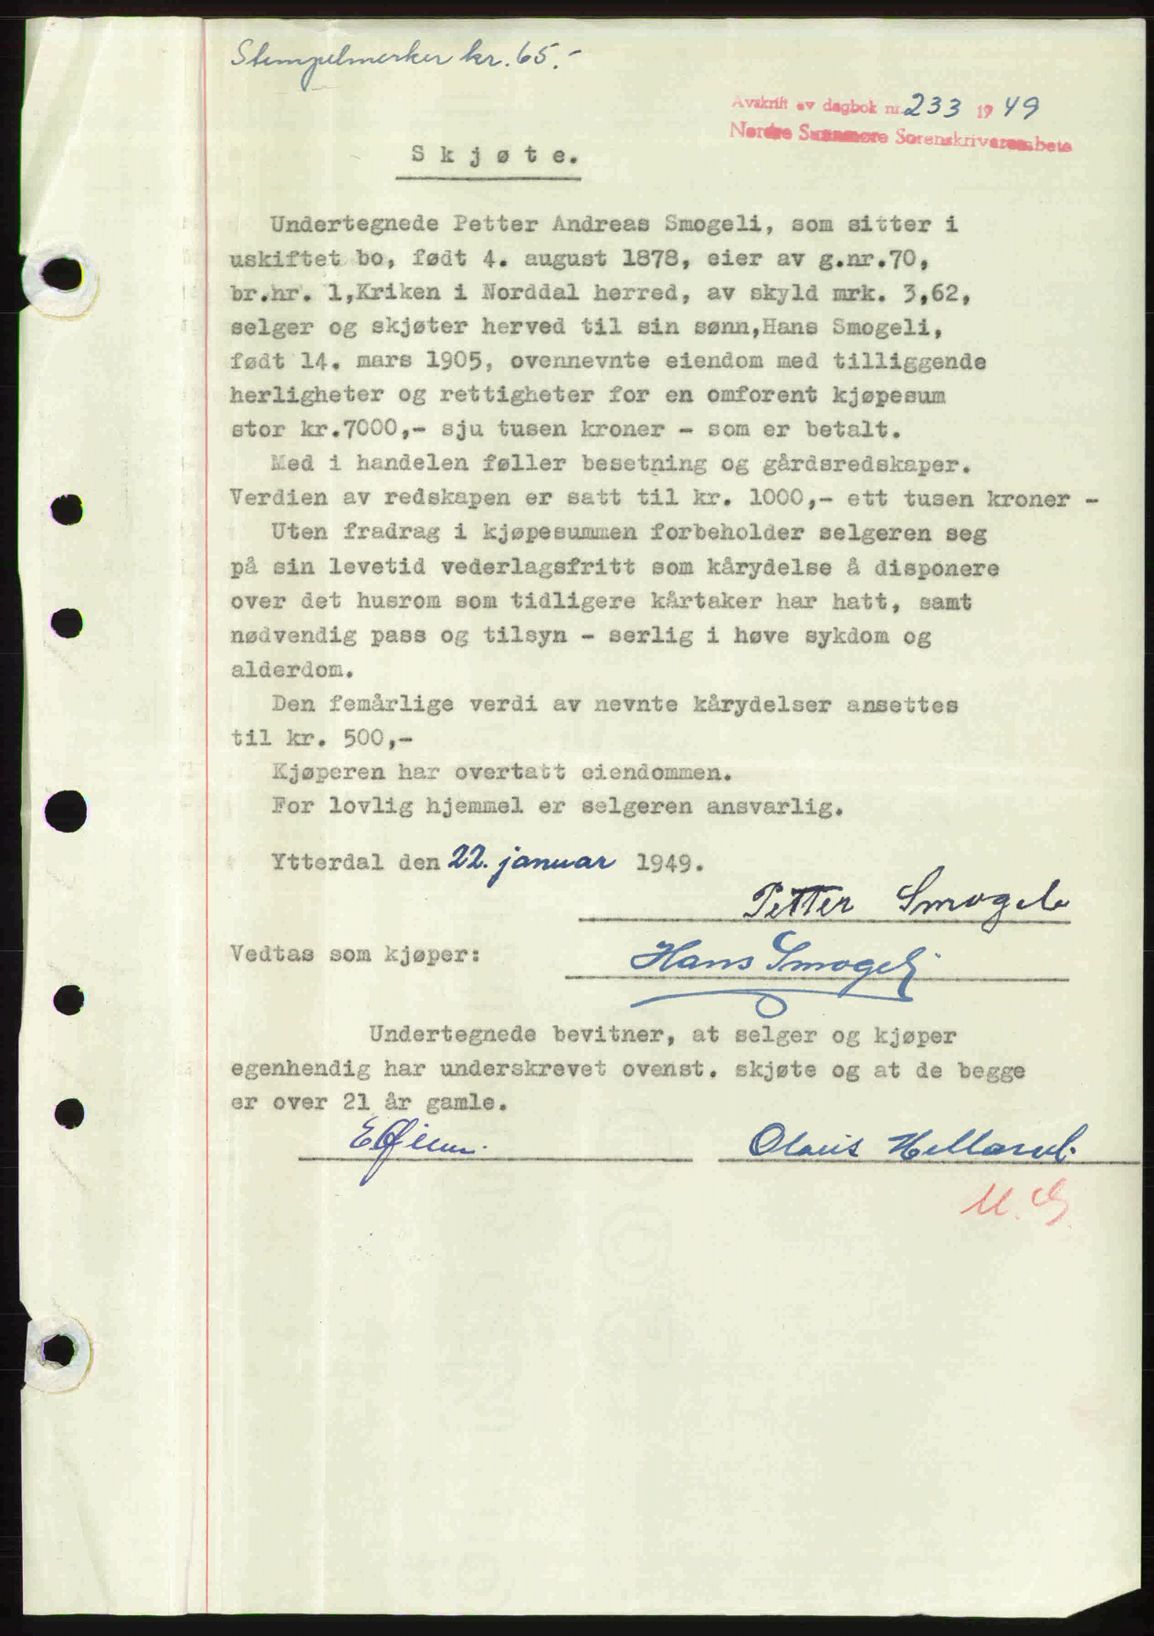 Stempelmerker kr. 65.-
Avskrift av dagbok nr. 233 1949
Nordre Sunnmøre Sorenskriverembete
Skjøte.
Undertegnede Petter Andreas Smogeli, som sitter i
uskiftet bo, født 4. august 1878, eier av g.nr.70,
br.nr. 1,Kriken i Norddal herred, av skyld mrk. 3,62,
selger og skjøter herved til sin sønn,Hans Smogeli,
født 14. mars 1905, ovennevnte eiendom med tilliggende
herligheter og rettigheter for en omforent kjøpesum
stor kr.7000,- sju tusen kroner - som er betalt.
Med i handelen føller besetning og gårdsredskaper.
Verdien av redskapen er satt til kr. 1000,- ett tusen kroner -
Uten fradrag i kjøpesummen forbeholder selgeren seg
på sin levetid vederlagsfritt som kårydelse å disponere
over det husrom som tidligere kårtaker har hatt, samt
nødvendig pass og tilsyn - serlig i høve sykdom og
alderdom.
Den femårlige verdi av nevnte kårydelser ansettes
til kr. 500,-
Kjøperen har overtatt eiendommen.
For lovlig hjemmel er selgeren ansvarlig.
Ytterdal den 22. januar 1949.
Petter Smogeli
Vedtas som kjøper: Hans Smogeli
Undertegnede bevitner, at selger og kjøper
egenhendig har underskrevet ovenst. skjøte og at de begge
er over 21 år gamle.
Olavis